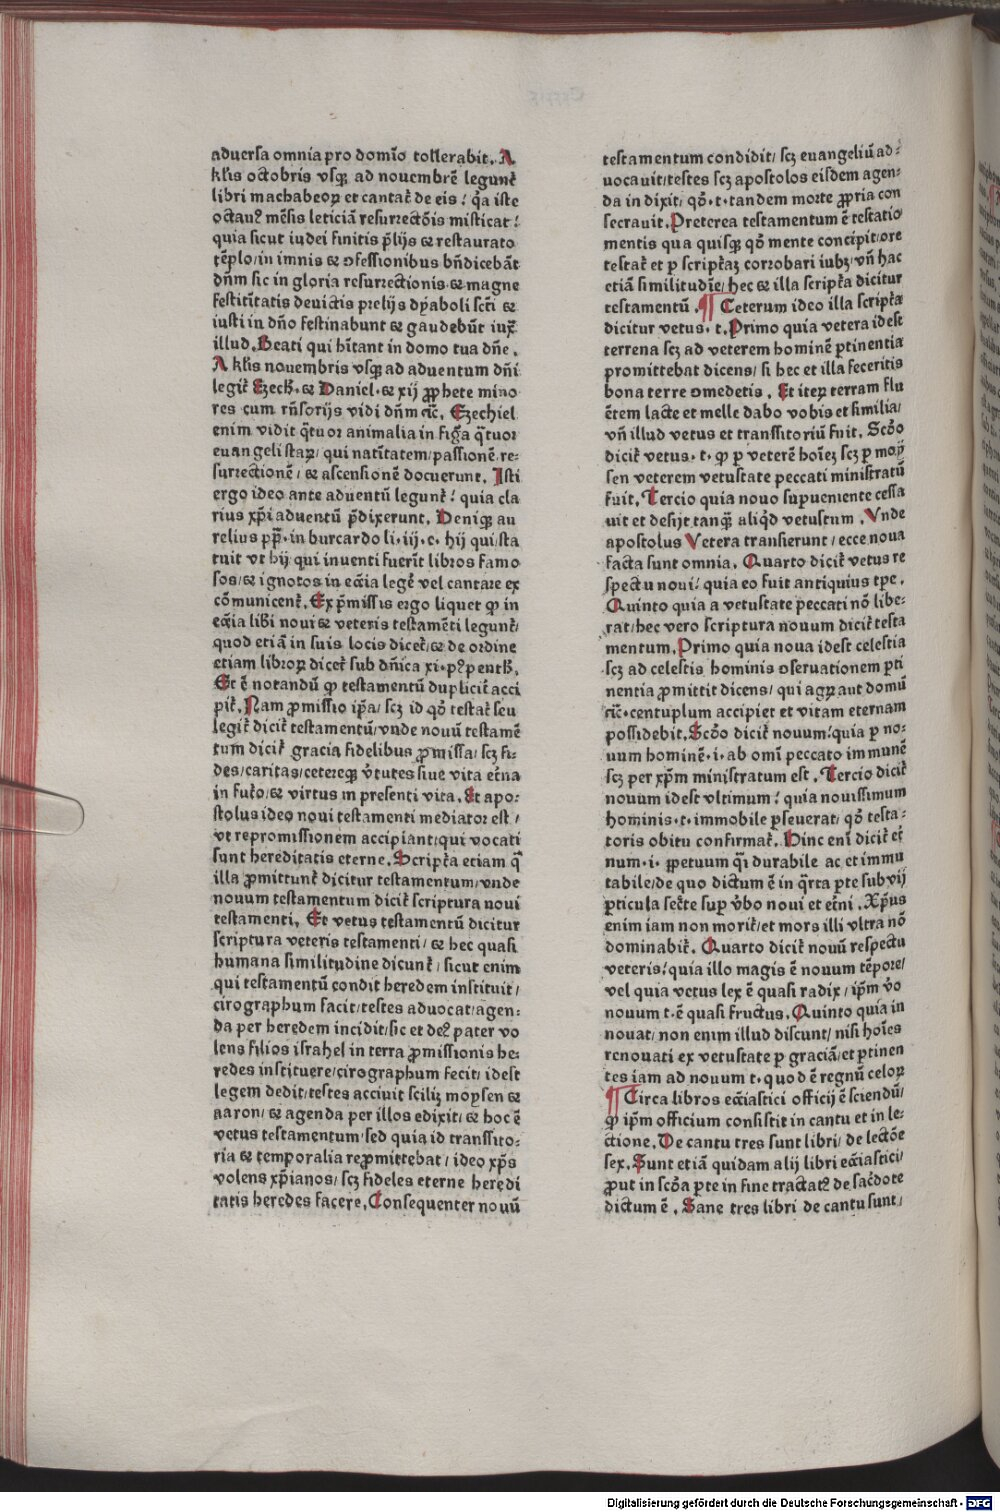 aduersa omnia pro domīo tollerabit. A
kl̄is octobris vsqꝫ ad nouembrē legunt᷑
libri machabeoꝝ et cantat᷑ de eis / q̄a iste
octauꝰ mēsis leticiā resurrectōis misticat /
quia sicut iudei finitis p̄lijs ⁊ restaurato
tēplo / in imnis ⁊ ꝯfessionibus bn̄dicebāt
dn̄m sic in gloria resurrectionis ⁊ magne
festiuitatis deuictis prelijs dyaboli scti ⁊
iusti in dn̄o festinabunt ⁊ gaudebūt iux̄
illud. Beati qui hītant in domo tua dn̄e.
A kl̄is nouembris vsqꝫ ad aduentum dn̄i
legit᷑ Ezech. ⁊ Daniel. ⁊ xij ꝓphete mino
res cum rn̄sorijs vidi dn̄m ⁊c̄. Ezechiel
enim vidit q̄tuor animalia in figa q̄tuor
euangelistaꝝ / qui natītatem / passionē / re-
surrectionē / ⁊ ascensionē docuerunt. Isti
ergo ideo ante aduentū legunt᷑ / quia cla
rius xp̄i aduentū p̄dixerunt. Deniqꝫ au
relius pp̄. in burcardo li. iij. c. hij qui sta
tuit vt hij qui inuenti fuerīt libros famo
sos / ⁊ ignotos in ecc̄ia legē vel cantare ex
cōmunicent᷑. Ex p̄missis ergo liquet ꝙ in
ecc̄ia libi noui ⁊ veteris testamēti legunt᷑ /
quod etiā in suis locis dicet᷑ / ⁊ de ordine
etiam libroꝝ dicet᷑ sub dn̄ica xi. pꝰ penth.
Et ē notandū ꝙ testamentū duplicit̄ acci
pit᷑. Nam ꝓmissio ip̄a / scꝫ id qd̄ testat᷑ seu
legit᷑ dicit᷑ testamentū / vnde nouū testamē
tum dicit᷑ gracia fidelibus ꝓmissa / scꝫ fi-
des / caritas / ceterqꝫ v̄tutes siue vita et̄na
in futo / ⁊ virtus in presenti vita. Et apo-
stolus ideo noui testamenti mediator est /
vt repromissionem accipiant / qui vocati
sunt hereditatis eterne. Script̄a etiam q̄
illa ꝓmittunt᷑ dicitur testamentum / vnde
nouum testamentum dicit᷑ scriptura noui
testamenti. Et vetus testamentū dicitur
scriptura veteris testamenti / ⁊ hec quasi
humana similitudine dicunt᷑ / sicut enim
qui testamentū condit heredem instituit /
cirographum facit / testes aduocat / agen-
da per heredem incidit / sic et deꝰ pater vo
lens filios israhel in terra ꝓmissionis he-
redes instituere / cirographum fecit / idest
legem dedit / testes acciuit scilꝫ moysen ⁊
aaron / ⁊ agenda per illos edixit / ⁊ hoc ē
vetus testamentum / sed quia id transsito-
ria ⁊ temporalia reꝓmittebat / ideo xp̄s
volens xp̄ianos / scꝫ fideles eterne heredi
tatis heredes facere. Consequenter nouū
testamentum condidit / scꝫ euangeliū ad-
uocauit / testes scꝫ apostolos eisdem agen-
da indixit / qd̄. t. tandem morte ꝓpria con
secrauit. Preterea testamentum ē testatio
mentis qua quisqꝫ qd̄ mente concipit / ore
testat᷑ et ꝑ script̄aꝫ corrobari iubꝫ / vn̄ hac
etiā similitudīe / hec ⁊ illa script̄a dicitur
testamentū. ¶ Ceterum ideo illa script̄a
dicitur vetus. t. Primo quia vetera idest
terrena scꝫ ad veterem hominē ꝑtinentia
promittebat dicens / si hec et illa feceritis
bona terre ꝯmedetis. Et iteꝝ terram flu
ētem lacte et melle dabo vobis et similia /
vn̄ illud vetus et transsitoriū fuit. Scd̄o
dicit᷑ vetus. t. ꝙ ꝑ veterē hoīeꝫ scꝫ ꝑ moy
sen veterem vetustate peccati ministratū
fuit. Tercio quia nouo supueniente cessa
uit et desijt tanqꝫ aliqd̄ vetustum. Vnde
apostolus Vetera transierunt / ecce noua
facta sunt omnia. Quarto dicit᷑ vetus re
spectu noui / quia eo fuit antiquius tp̄e.
Quinto quia a vetustate peccati nō libe-
rat / hec vero scriptura nouum dicit᷑ testa
mentum. Primo quia noua idest celestia
scꝫ ad celestis hominis ꝯseruationem ꝑti
nentia ꝓmittit dicens / qui agꝝ aut domū
⁊c̄. centuplum accipiet et vitam eternam
possidebit. Scd̄o dicit᷑ nouum / quia ꝑ no-
uum hominē. i. ab om̄i peccato immunē
scꝫ per xp̄m ministratum est. Tercio dicit᷑
nouum idest vltimum / quia nouissimum
hominis. t. immobile ꝑseuerat / qd̄ testa-
toris obitu confirmat᷑. Hinc eni dicit᷑ et̄
num. i. ꝑpetuum q̄i durabile ac et immu
tabile / de quo dictum ē in q̄rta ꝑte sub vij
ꝑticula secte suꝑ v̄bo noui et et̄ni. Xp̄us
enim iam non morit᷑ / et mors illi vltra nō
dominabit᷑. Quarto dicit᷑ nouū respectu
veteris / quia illo magis ē nouum tēpore /
vel quia vetus lex ē quasi radix / ip̄m v̄o
nouum t. ē quasi fructus. Quinto quia in
nouat / non enim illud discunt / nisi hoīes
renouati ex vetustate ꝑ graciā / et ꝑtinen
tes iam ad nouum t. quod ē regnū celoꝝ
¶ Circa libros ecc̄iastici officij ē sciendū /
ꝙ ip̄m officium consistit in cantu et in le-
ctione. De cantu tres sunt libri / de lectōe
sex. Sunt etiā quidam alij libri ecc̄iastici /
ꝓut in scd̄a ꝑte in fine tractatꝰ de sac̄dote
dictum ē. Sane tres libri de cantu sunt /
Digitalisierung gefördert durch die Deutsche Forschungsgemeinschaft - DFG